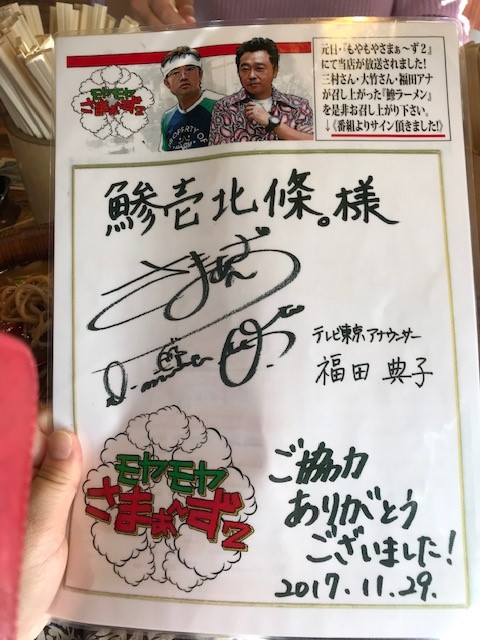 元日・『もやもやさまぁ〜ず2』
にて当店が放送されました!
三村さん・大竹さん・福田アナ
が召し上がった『鯵ラーメン』
を是非お召し上がり下さい。
↓《番組よりサイン頂きました!》
モヤモヤ
さまぁ〜ず2
PROPERTY OF
鯵壱北條。様
さまぁ〜ず
テレビ東京アナウンサー
福田 典子
モヤモヤ
さまぁ〜ず2
ご協力
ありがとう
ございました!
2017.11.29.